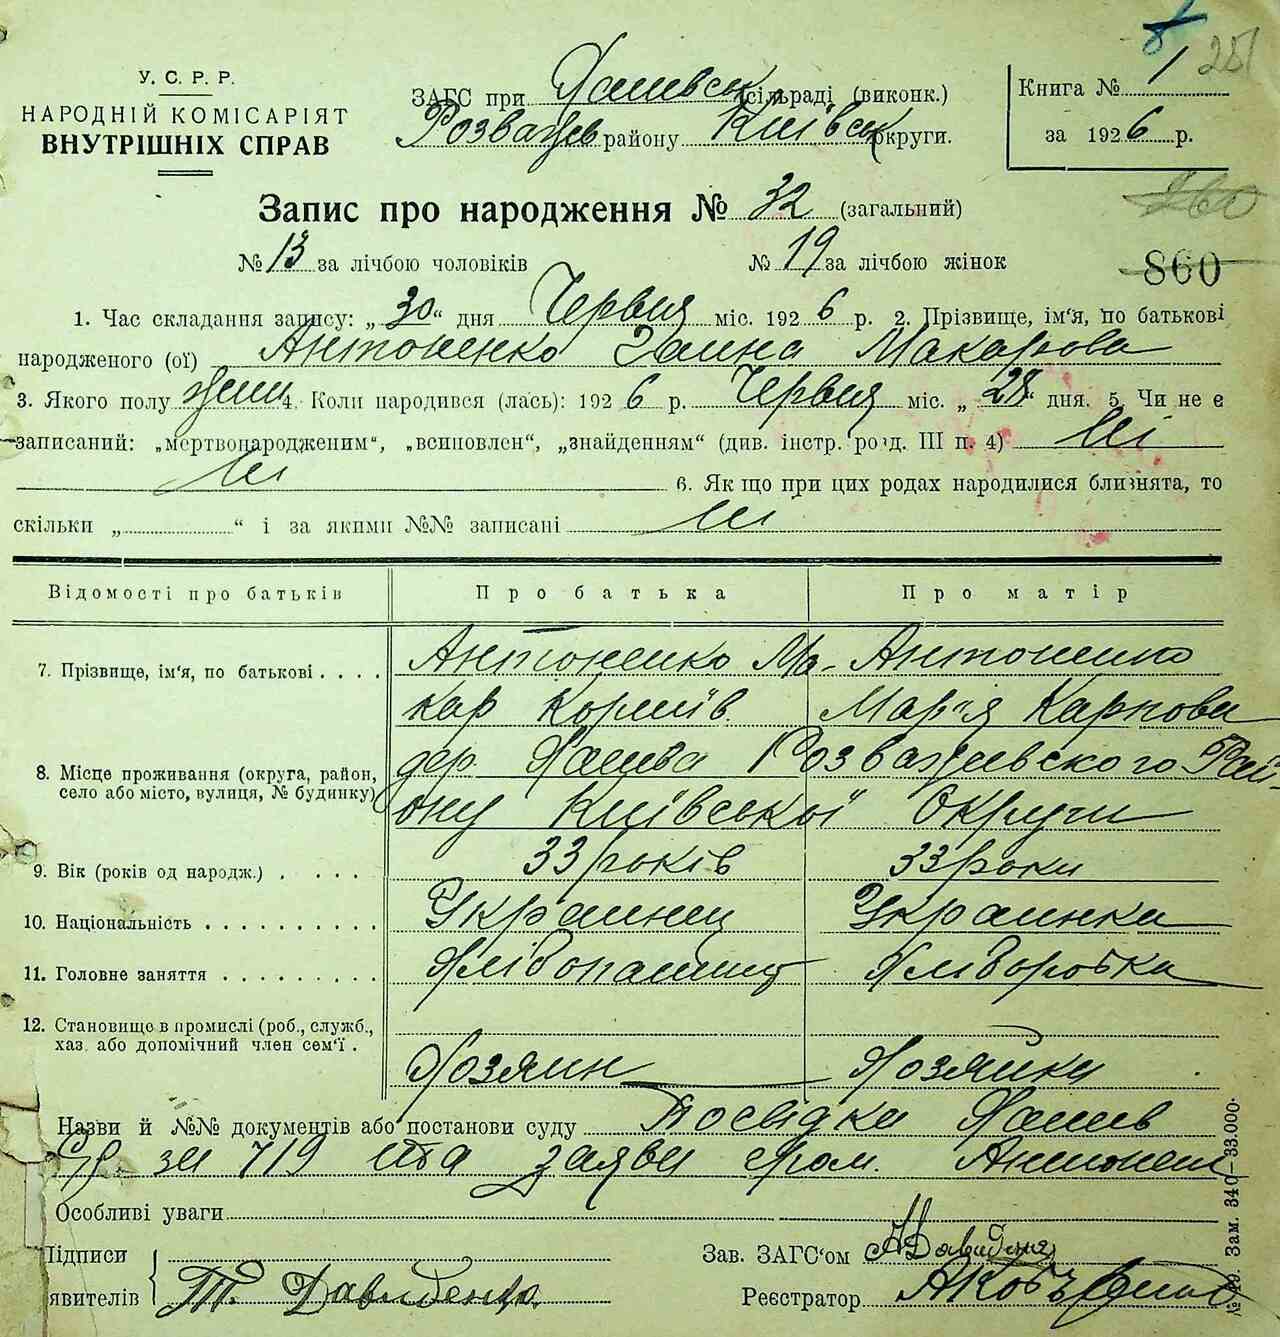 251
У. С. Р. Р.
НАРОДНІЙ КОМІСАРІЯТ
ВНУТРІШНІХ СПРАВ
ЗАГС при сільраді (виконк.)
Розважев району Київськ округи.
Книга № 1
за 1926 р.
Запис про народження № 32 (загальний)
260
№ 13 за лічбою чоловіків № 19 за лічбою жінок
860
1. Час складання запису: „30“ дня Червня міс. 1926 р. 2. Прізвище, ім‘я, по батькові
народженого (ої) Антоненко Ганна Макарова
3. Якого полу жін 4. Коли народився (лась): 1926 р. Червня міс. „28“ дня. 5. Чи не є
записаний: „мертвонародженим“, „всиновлен“, „знайденням“ (див. інстр. розд. III п. 4) Ні
Ні 6. Як що при цих родах народилися близнята, то
скільки „ “ і за якими №№ записані Ні
Відомості про батьків Про батька Про матір
7. Прізвище, ім‘я, по батькові . . . . Антоненко Ма- Антоненко
кар Корніїв Мар‘я Карпова
8. Місце проживання (округа, район, дер. Розважевского Рай-
село або місто, вулиця, № будинку) ону Київської Округи
9. Вік (років од народж.) . . . . 33 років 33 роки
10. Національність . . . . . . . . . . Украинец Украинка
11. Головне заняття . . . . . . . . . Хлібопашец Хліборобка
12. Становище в промислі (роб., служб.,
хаз. або допомічний член сем‘ї . Хозяин Хозяйка
Назви й №№ документів або постанови суду Посвідка
за 719 та заяви гром. Антонен
Особливі уваги
Підписи Зав. ЗАГС‘ом
явителів Т. Давиденко Реєстратор
Зам. 340—33.000.